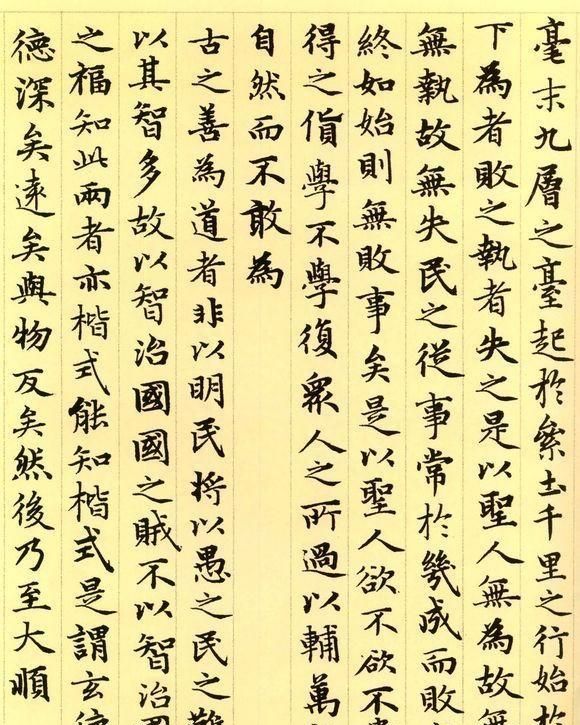 毫末九層之臺起於絫土千里之行始於
下為者敗之執者失之是以聖人無為故無
無執故無失民之從事常於幾成而敗
終如始則無敗事矣是以聖人欲不欲不
得之貨學不學復眾人之所過以輔萬
自然而不敢為
古之善為道者非以明民將以愚之民之難
以其智多故以智治國國之賊不以智治國
之福知此兩者亦楷式能知楷式是謂玄德
德深矣遠矣與物反矣然後乃至大順